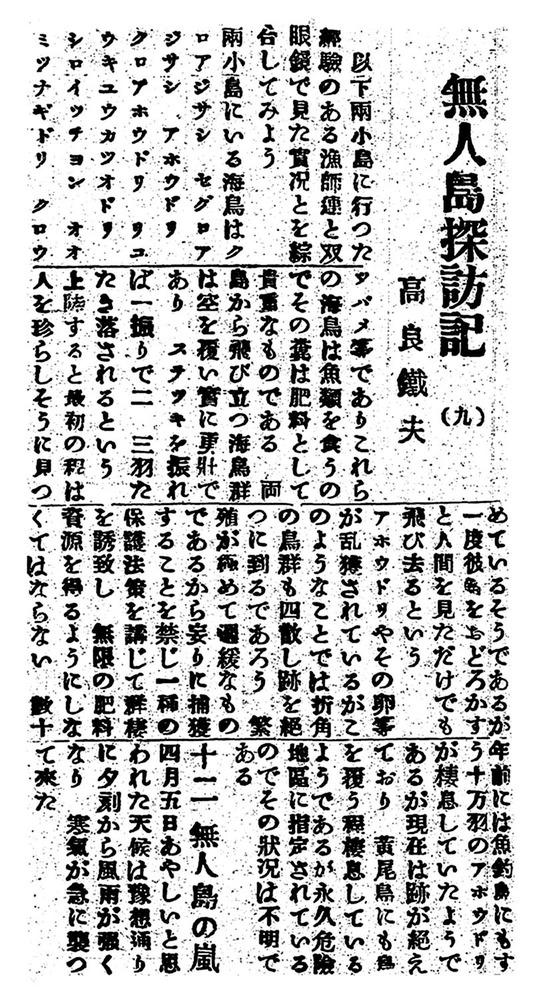 無人島探訪記
(九)
高良鐵夫
以下兩小島に行つた
經驗のある漁師連と双
眼鏡で見た實況とを綜
合してみよう
兩小島にいる海鳥はク
ロアジサシ セグロア
ジサシ アホウドリ
クロアホウドリ リユ
ウキユウカツオドリ
シロイツチヨン オオ
ミツナギドリ クロウ
タバメ等でありこれら
の海鳥は魚類を食うの
でその糞は肥料として
貴重なものである 両
島から飛び立つ海鳥群
は空を覆い實に勇壯で
あり ステツキを振れ
ば一振りで二 三羽た
たき落されるという
上陸すると最初の程は
人を珍らしそうに見つ
めているそうであるが
一度彼鳥をおどろかす
と人間を見ただけでも
飛び去るという
アホウドリやその卵等
が乱獲されているがこ
のようなことでは折角
の鳥群も四散し跡を絶
つに到るであろう 繁
殖が極めて遲緩なもの
であるから妄りに捕獲
することを禁じ一種の
保護法策を講じて群棲
を誘致し 無限の肥料
資源を得るようにしな
くてはならない 數十
年前には魚釣島にもす
う十万羽のアホウドリ
が棲息していたようで
あるが現在は跡が絶え
ており 黄尾島にも島
を覆う程棲息している
ようであるが永久危險
地區に指定されている
のでその狀況は不明で
ある
十二 無人島の嵐
四月五日あやしいと思
われた天候は豫想通り
に夕刻から風雨が強く
なり 寒氣が急に襲つ
て來た